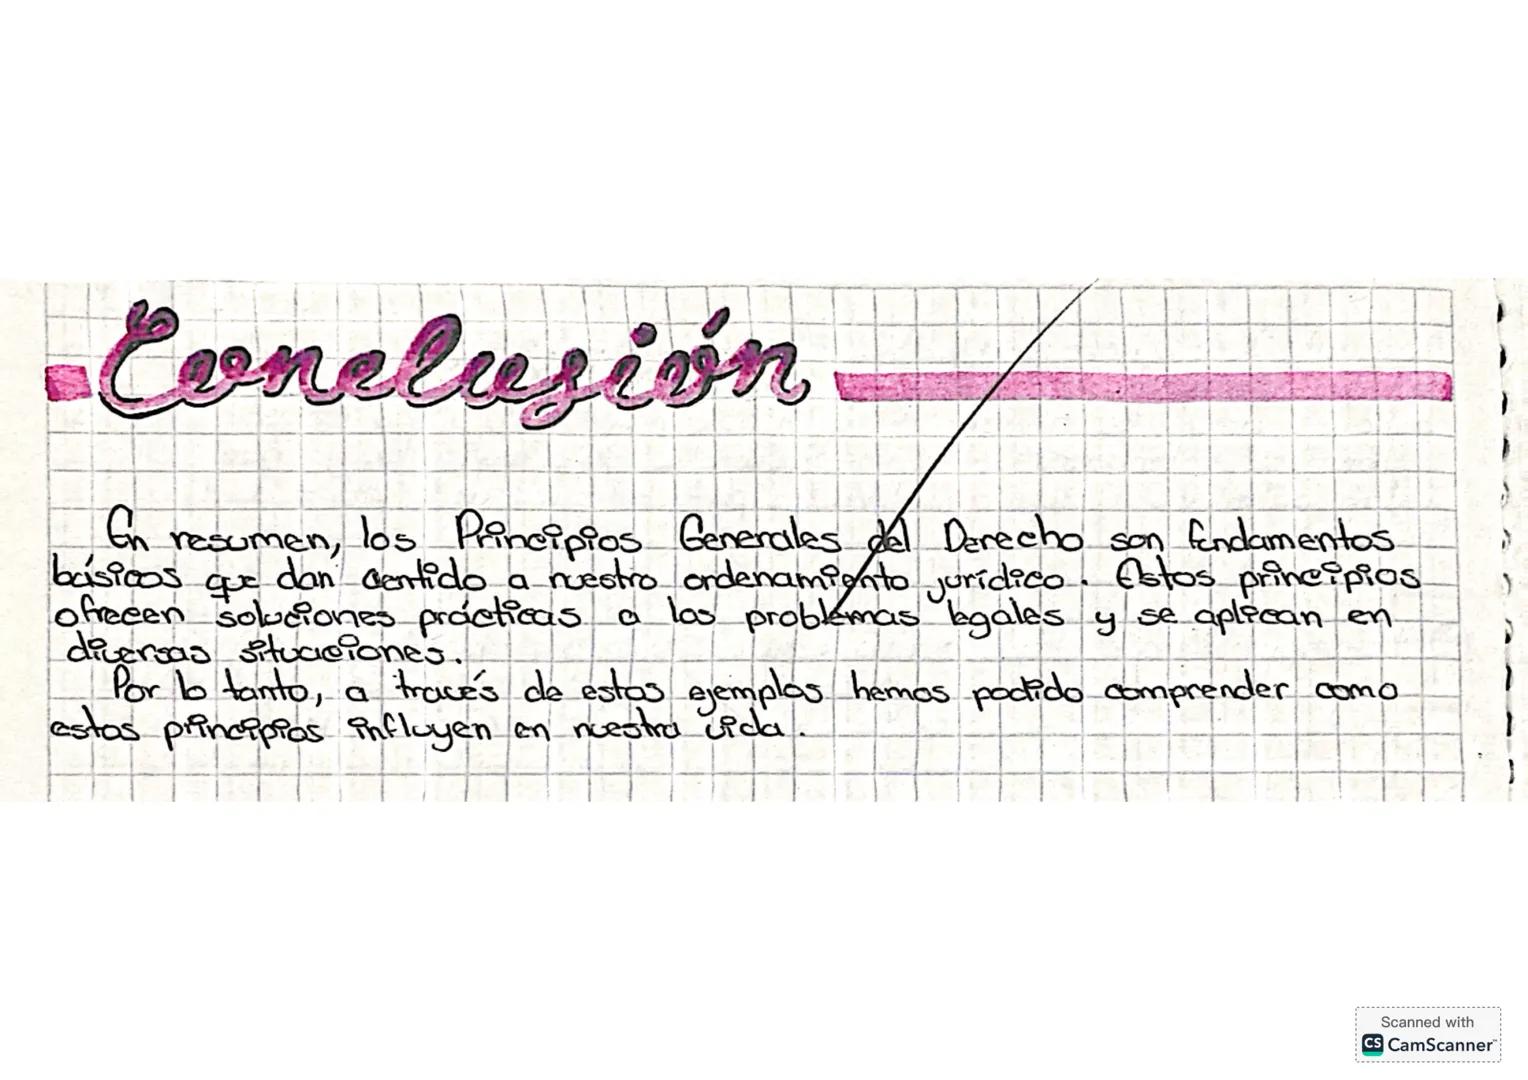 Conclusión
En resumen, los Principios Generales del Derecho son fundamentos
básicos que dan sentido a nuestro ordenamiento jurídico. Estos principios
ofrecen soluciones prácticas a los problemas legales y se aplican en
diversas situaciones.
Por lo tanto, a través de estos ejemplos hemos podido comprender como
estos principios influyen en nuestra vida.
Scanned with
CS CamScanner™